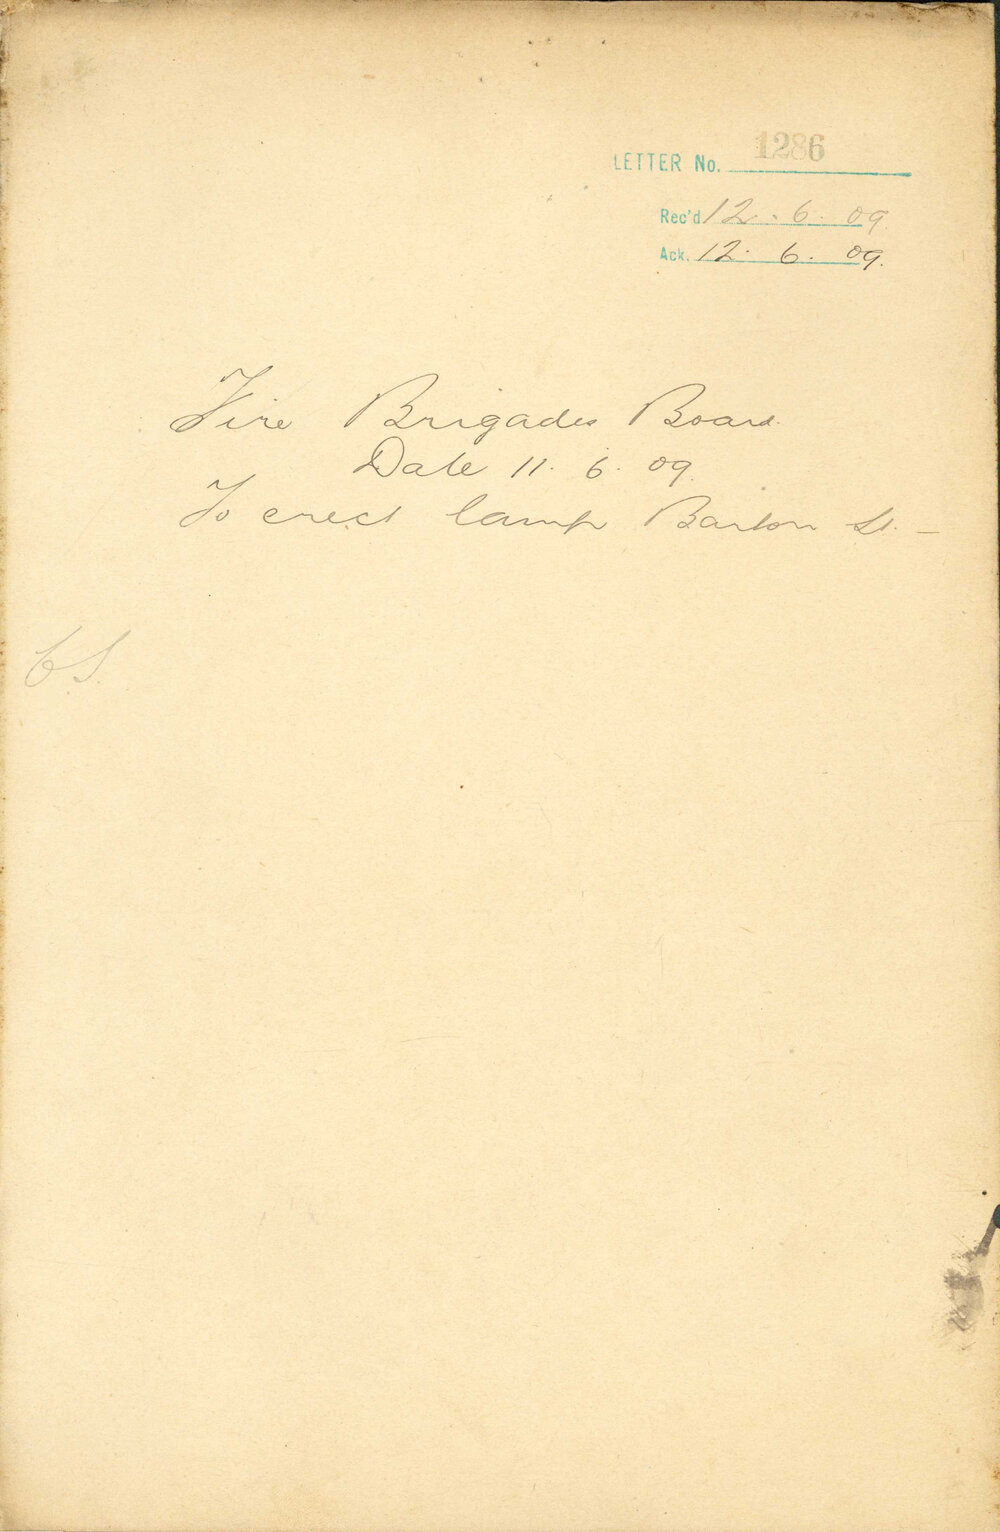 LETTER No. 1286
Rec'd 12.6.09
Ack. 12.6.09.
Fire Brigades Board
Date 11.6.09.
To erect lamp Barton St. —
C.S.